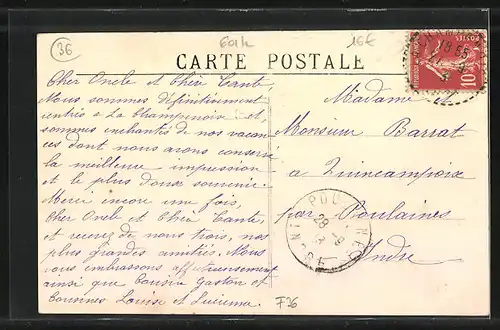 36
601k
15€
CARTE POSTALE
10
POSTES
Cher Oncle et Chère Tante,
Nous sommes définitivement
rentrés à La Champenoise et
sommes enchantés de nos vacan
ces dont nous avons conservé
la meilleure impression
et le plus doux souvenir.
Merci encore une fois,
Cher Oncle et Chère Tante,
et recevez de nous trois, nos
plus grandes amitiés. Nous
vous embrassons affectueusement
ainsi que Cousin Gaston et
Cousines Louise et Lucienne.
Madame et
Monsieur Barrat
à Quincampoix
par Poulaines
Indre
F36